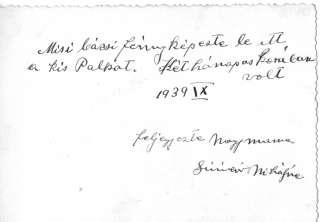 Misi bácsi fényképeste le itt
a kis Palkot. Hét hónapos korában
volt
1939 IX
feljegyezte Nagymama
Mihályné